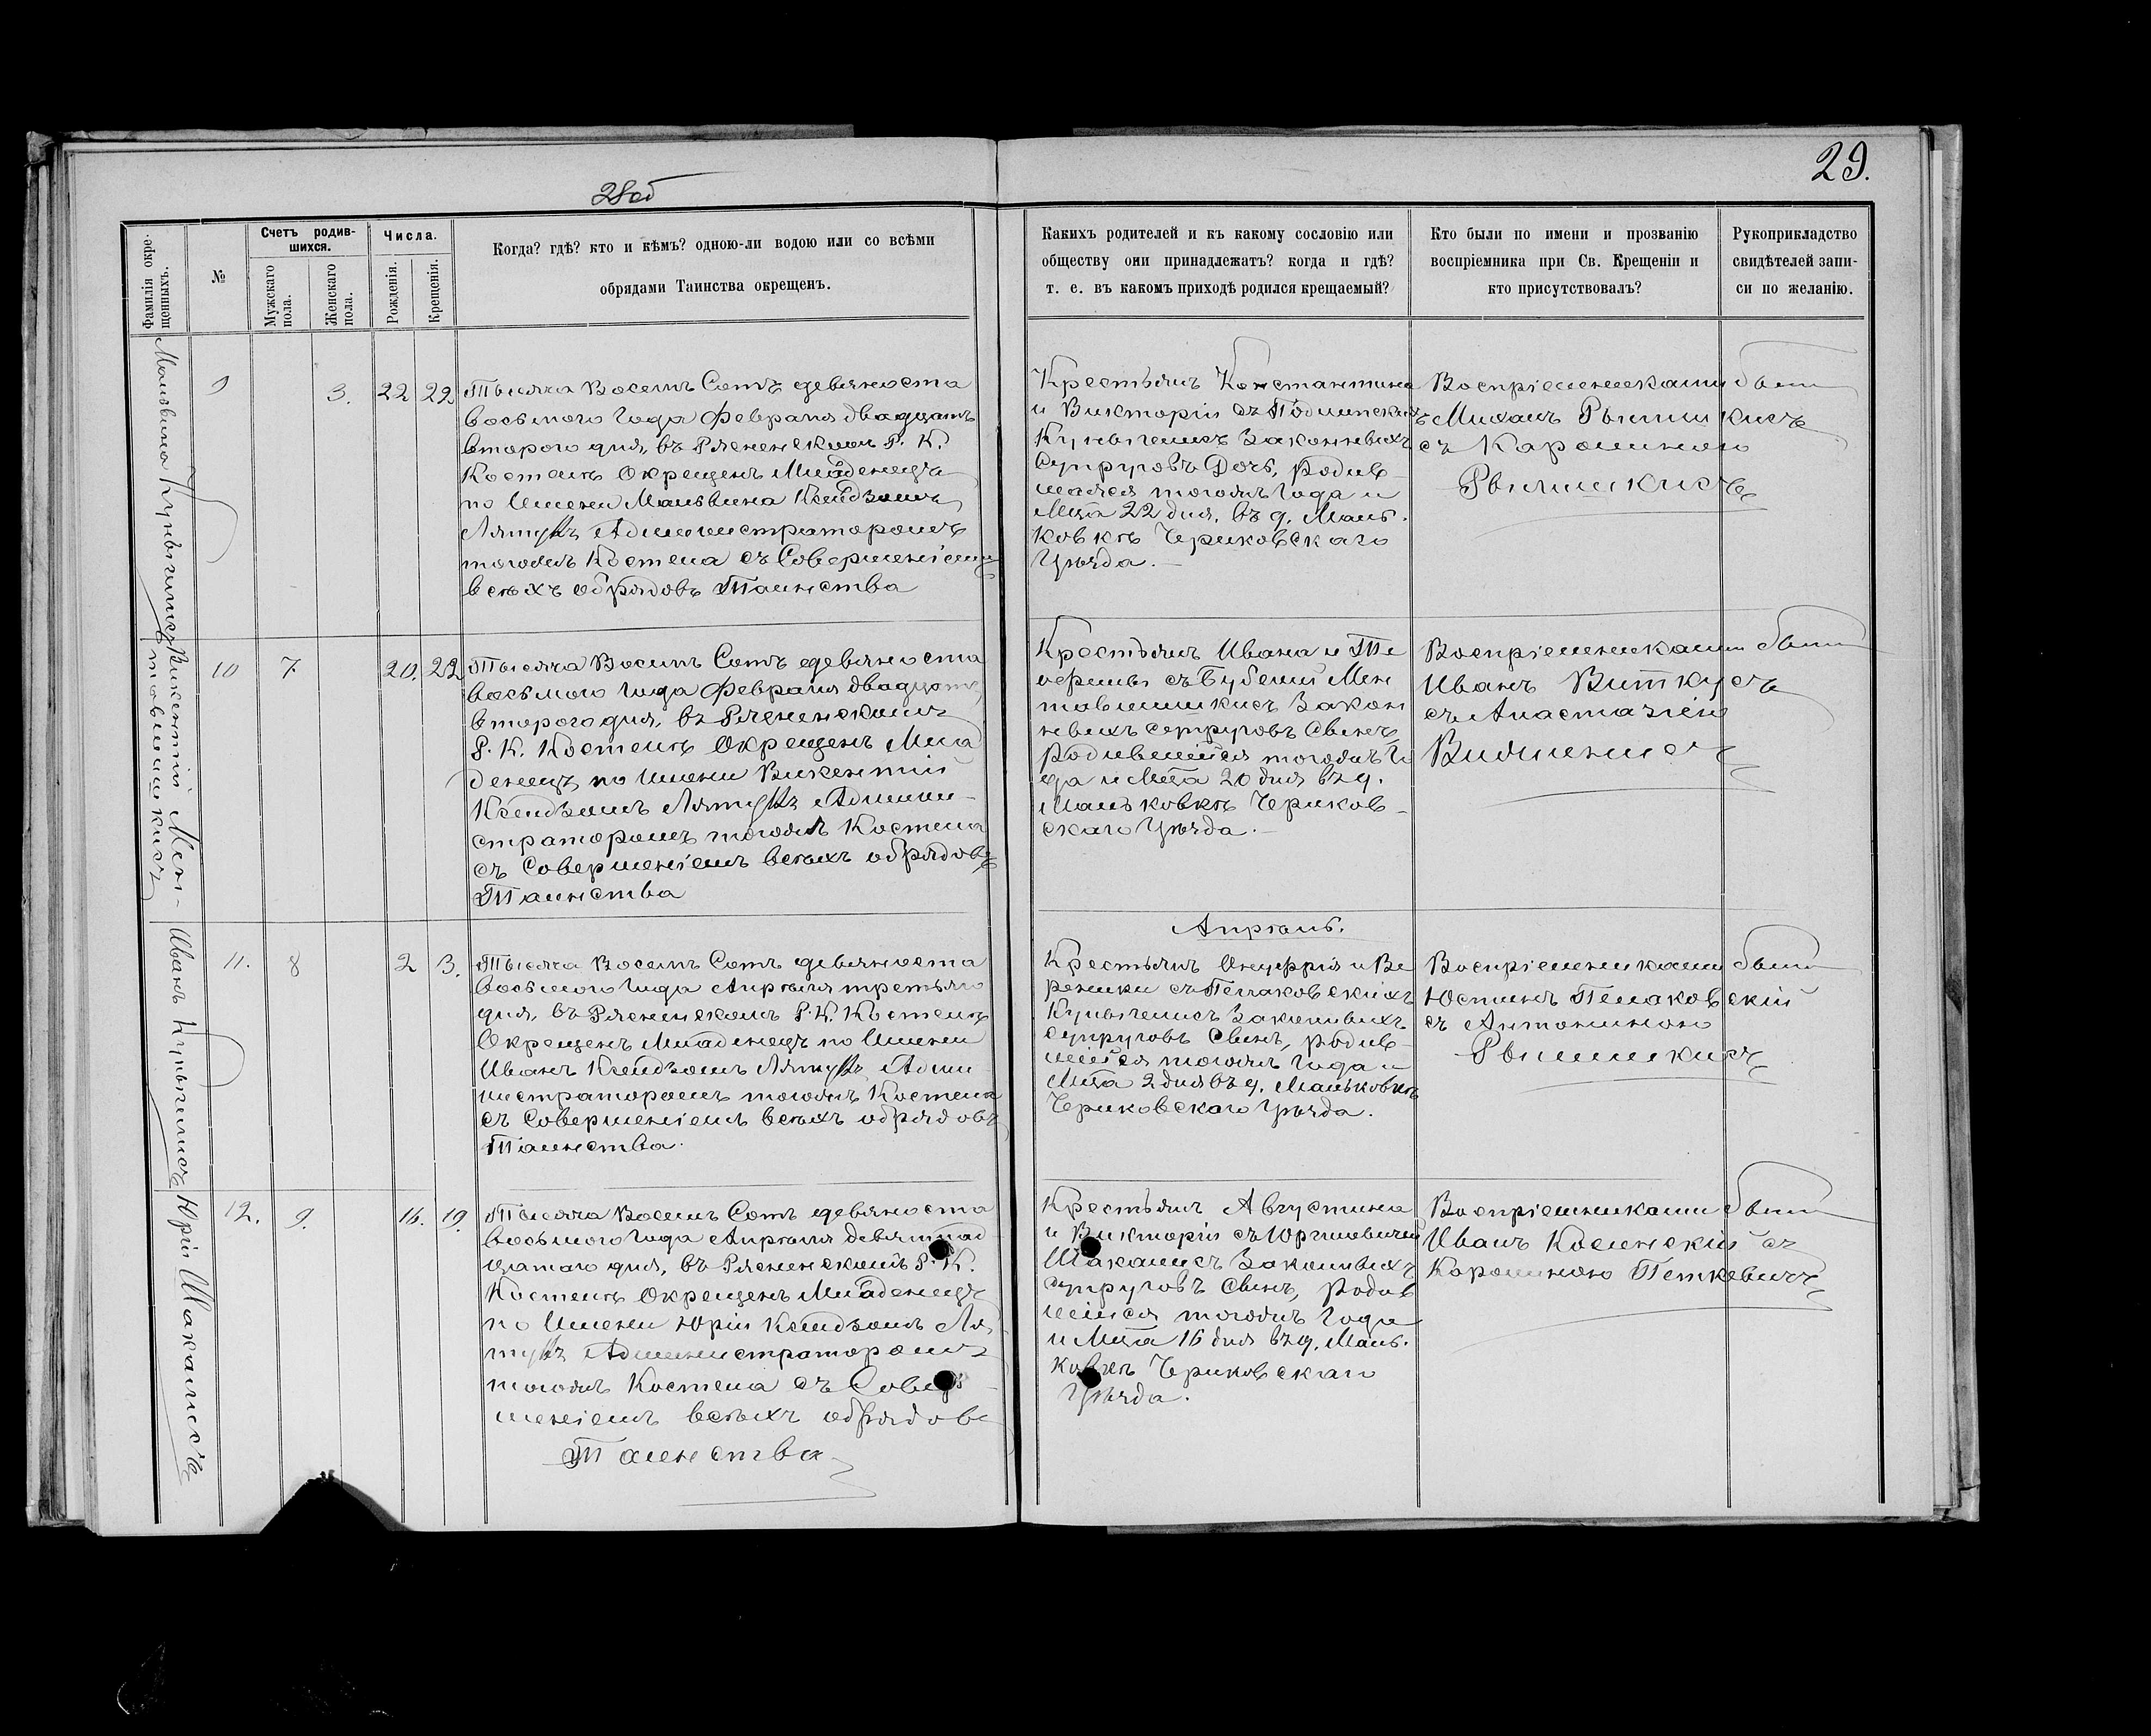 28об
29.
Фамилія окре-
щенныхъ.
№
Счетъ родив-
шихся.
Мужскаго
пола.
Женскаго
пола.
Числа.
Рожденія.
Крещенія.
Когда? гдѣ? кто и кѣмъ? одною-ли водою или со всѣми
обрядами Таинства окрещенъ.
Какихъ родителей и къ какому сословію или
обществу они принадлежатъ? когда и гдѣ?
т. е. въ какомъ приходѣ родился крещаемый?
Кто были по имени и прозванію
воспріемника при Св. Крещеніи и
кто присутствовалъ?
Рукоприкладство
свидѣтелей запи-
си по желанію.
Мальвина
9
3.
22
22
Тысяча Восемъ Сотъ девяноста
восьмого Года Февраля двадцать
второго дня, въ Рясненскомъ Р. К.
Костелѣ Окрещенъ Младенецъ
по Имени Мальвина Ксендзомъ
Администраторомъ
тогожъ Костела съ Совершеніемъ
всѣхъ обрядовъ Таинства
Крестьянъ Константина
и Викторіи съ
Законныхъ
Супруговъ Дочь, родив-
шаяся тогожъ Года и
Мца 22 дня, въ д. Мань-
ковкѣ Чериковскаго
Уѣзда.
Воспріемниками были
Михаилъ
съ Каролиною
Викентій Мен-
тавлишкисъ
10
7.
20.
22
Тысяча Восемъ Сотъ девяноста
восьмого Года Февраля двадцать
второго дня, въ Рясненскомъ
Р. К. Костелѣ Окрещенъ Мла
денецъ по Имени Викентій
Ксендзомъ Админи-
страторомъ тогожъ Костела
съ Совершеніемъ всѣхъ обрядовъ
Таинства
Крестьянъ Ивана и
Мен
тавлишкисъ Закон
ныхъ Супруговъ Сынъ,
родившійся тогожъ Го
да и Мца 20 дня въ д.
Маньковкѣ Чериков-
скаго Уѣзда.
Воспріемниками были
Иванъ Виткусъ
съ Анастазіею
Апрѣль.
Иванъ
11.
8
2
3.
Тысяча Восемъ Сотъ девяноста
восьмого Года Апрѣля третьяго
дня, въ Рясненскомъ Р. К. Костелѣ
Окрещенъ Младенецъ по Имени
Иванъ Ксендзомъ Адми
нистраторомъ тогожъ Костела
съ Совершеніемъ всѣхъ обрядовъ
Таинства.
Крестьянъ Онуфрія и Ве
роники съ
Законныхъ
супруговъ Сынъ, родив-
шійся тогожъ Года и
Мца 2 дня въ д. Маньковкѣ
Чериковскаго Уѣзда.
Воспріемниками были
Юстинъ
съ Антониною
Юрій Шакалисъ
12.
9.
16.
19.
Тысяча Восемъ Сотъ девяноста
восьмого Года Апрѣля девятнад
цатаго дня, въ Рясненскомъ Р. К.
Костелѣ Окрещенъ Младенецъ
по Имени Юрій Ксендзомъ
Администраторомъ
тогожъ Костела съ Совер
шеніемъ всѣхъ обрядовъ
Таинства
Крестьянъ Августина
и Викторіи съ Юргилевичей
Шакалисъ Законныхъ
супруговъ Сынъ, Родив
шійся тогожъ Года
и Мца 16 дня въ д. Мань-
ковкѣ Чериковскаго
Уѣзда.
Воспріемниками были
Иванъ съ
Каролиною Петкевичъ